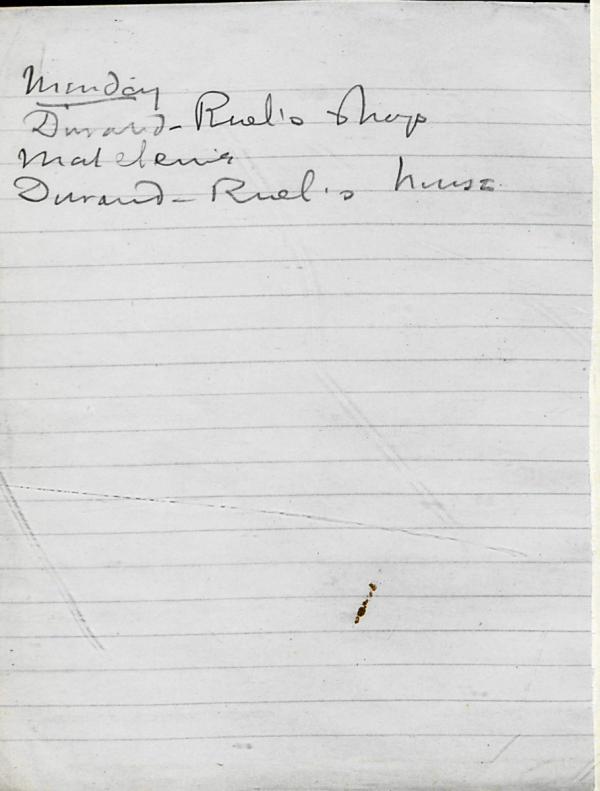 Monday
Durand-Ruel's shop
Durand-Ruel's house